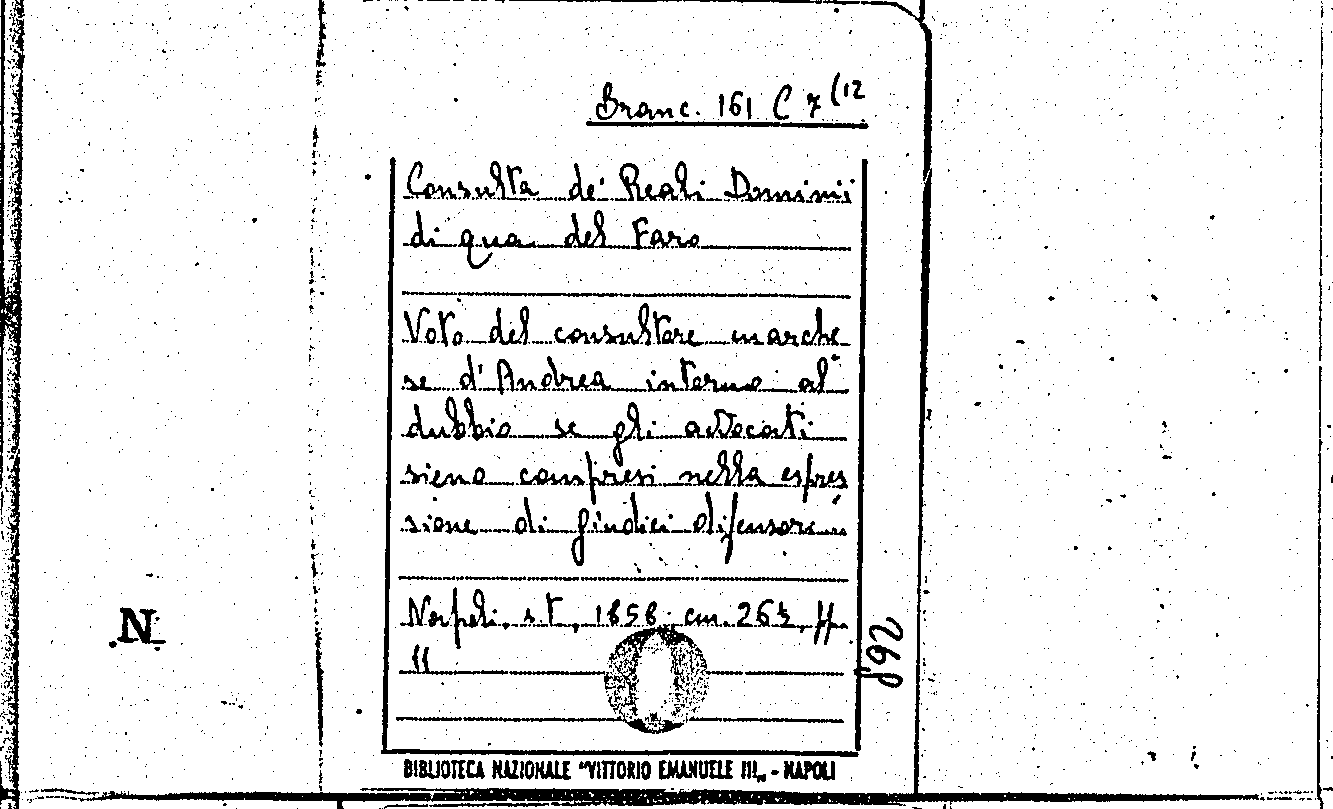 Branc. 161 C 7 (12
Consulta de' Reali Dominii
di qua del Faro
Voto del consultore marche
se d'Andrea intorno al
dubbio se gli avvocati
sieno compresi nella espres
sione di giudici difensori
Napoli, s.t., 1858, cm. 26½, pp.
11
892
N.
BIBLIOTECA NAZIONALE "VITTORIO EMANUELE III„ - NAPOLI